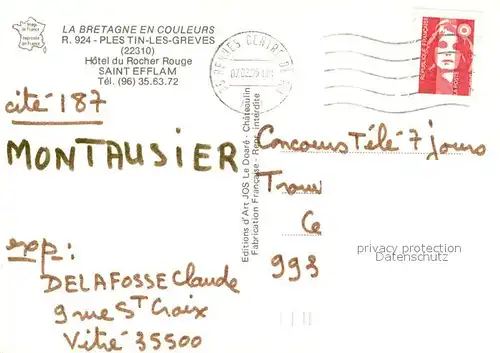 LA BRETAGNE EN COULEURS
R. 924 - PLESTIN-LES-GREVES
(22310)
Hôtel du Rocher Rouge
SAINT EFFLAM
Tél. (96) 35.63.72
35 RENNES CENTRE DE TRI
REPUBLIQUE FRANÇAISE
LA POSTE
cité 187
MONTAUSIER
Editions d'Art JOS Le Doaré - Châteaulin
Fabrication Française - Repr. interdite
Concours Télé 7 jours
993
privacy protection
Datenschutz
exp:
DELAFOSSE Claude
9 rue St Croix
Vitré 35500